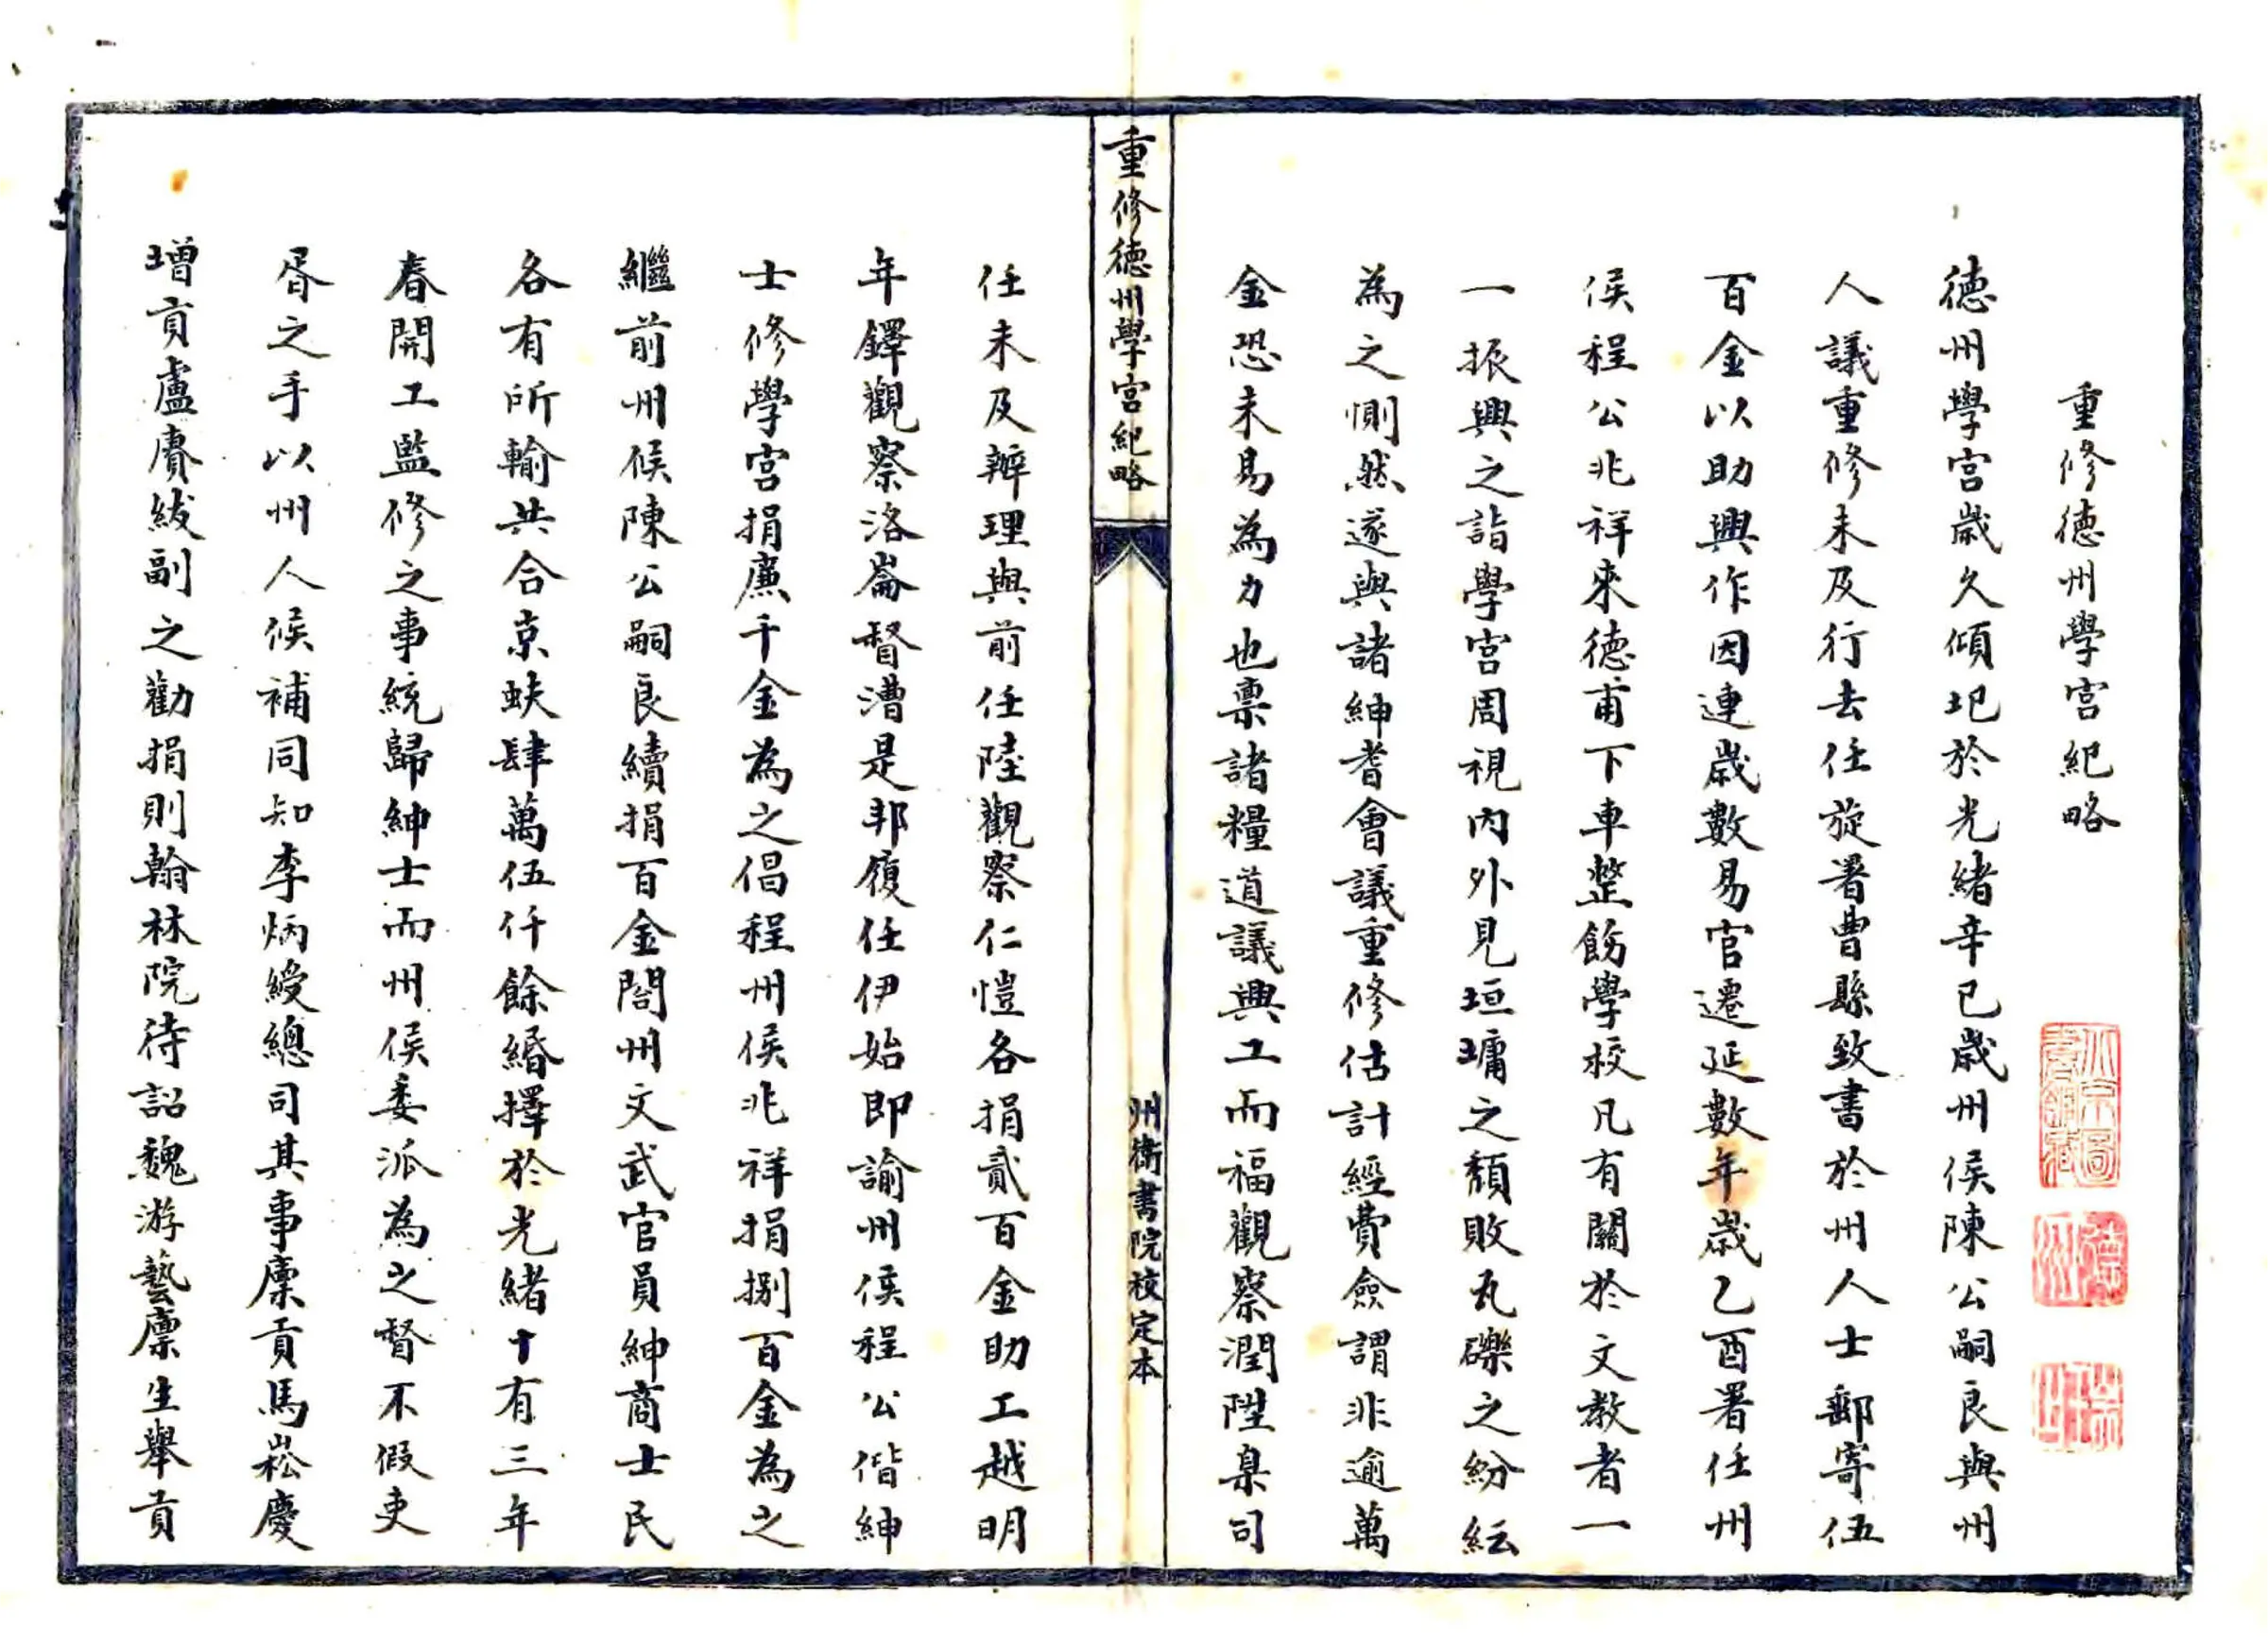 重修德州學宮紀略
德州學宮歲久傾圯於光緒辛巳歲州侯陳公嗣良與州
人議重修未及行去任旋署曹縣致書於州人士郵寄伍
百金以助興作因連歲數易官遷延數年歲乙酉署任州
侯程公兆祥來德甫下車整飭學校凡有關於文教者一
一振興之詣學宮周視內外見垣墉之頹敗瓦礫之紛紜
為之惻然遂與諸紳耆會議重修估計經費僉謂非逾萬
金恐未易為力也稟諸糧道議興工而福觀察潤陞臬司
重修德州學宮紀略
州衛書院校定本
任未及辦理與前任陸觀察仁愷各捐貳百金助工越明
年鐸觀察洛崙督漕是邦履任伊始即諭州侯程公偕紳
士修學宮捐廉千金為之倡程州侯兆祥捐捌百金為之
繼前州候陳公嗣良續捐百金閤州文武官員紳商士民
各有所輸共合京蚨肆萬伍仟餘緡擇於光緒十有三年
春開工監修之事統歸紳士而州侯委派為之督不假吏
胥之手以州人候補同知李炳綬總司其事廩貢馬崧慶
增貢盧賡紱副之勸捐則翰林院待詔魏游藝廩生舉貢